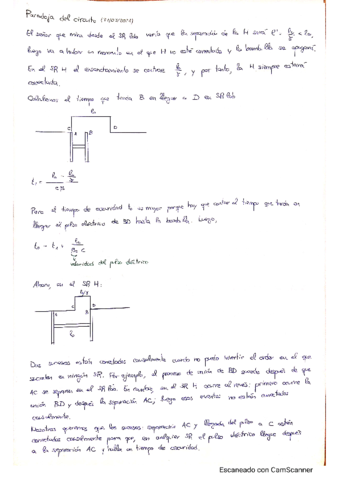 Paradoja del circuito
El señor que mira desde el SR Pablo vería que la separación de la H sería l' = l₀/γ < l₀,
luego va a haber un momento en el que H no esté conectada y la bombilla se apagará.
En el SR H el ensanchamiento se contrae l₀/γ, y por tanto, la H siempre estará
conectada.
Calculemos el tiempo que tarda B en llegar a D en SR Pablo
C D
A B
Para el tiempo de oscuridad hay que contar el tiempo que tarda en
llegar el pulso eléctrico de BD hasta la bombilla. Luego,
velocidad del pulso eléctrico
Ahora, en el SR H:
l₀/γ
C B D
A
l₀
Dos sucesos están conectados causalmente cuando no puedo invertir el orden en el que
suceden en ningún SR. Por ejemplo, el proceso de unión de BD sucede después de que
AC se separen en el SR Pablo. En cambio, en el SR H ocurre al revés: primero ocurre la
unión BD y después la separación AC; luego esos eventos no están conectados
causalmente.
Nosotros queremos que los sucesos separación AC y llegada del pulso a C estén
conectados causalmente para que, en cualquier SR el pulso eléctrico llegue después
a la separación AC y habrá un tiempo de oscuridad.
Escaneado con CamScanner